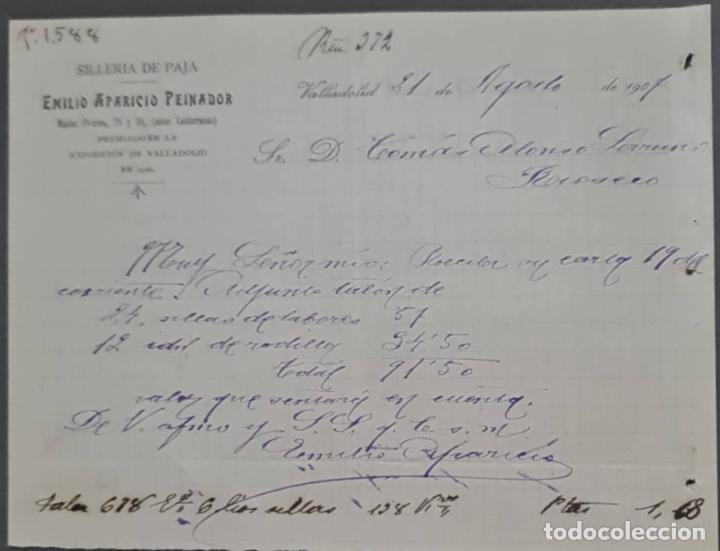 Nº 1,588
Rtro 372
SILLERIA DE PAJA
EMILIO APARICIO PEINADOR
PREMIADO EN LA
EXPOSICIÓN DE VALLADOLID
EN 1906.
Valladolid 21 de Agosto de 1907
Sr. D. Tomás Alonso
Rioseco
Muy Señor mio: Recibi su carta 19 del
corriente. Adjunto talon de
24 sillas de labores 57
12 id de rodilla 34'50
total 91'50
valor que sentará en cuenta.
De V. afmo y S. S. q. b. s. m.
Emilio Aparicio
Talon 678 6 lios sillas 138 Ptas 1,68
todocoleccion